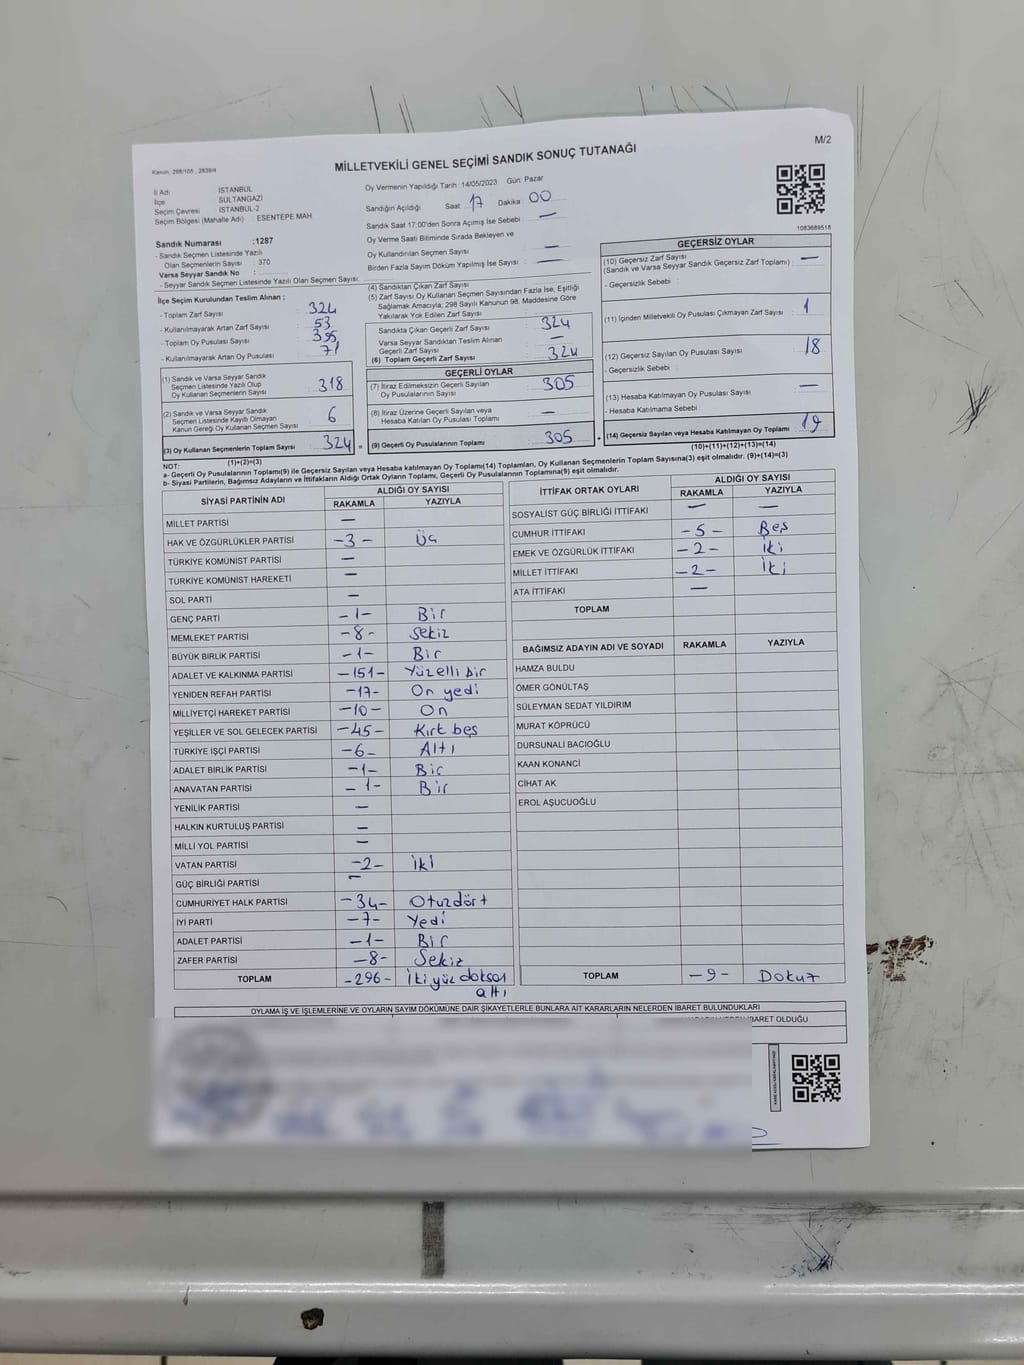 M/2
Kanun; 298/105 , 2839/4
MİLLETVEKİLİ GENEL SEÇİMİ SANDIK SONUÇ TUTANAĞI
İl Adı İSTANBUL
İlçe SULTANGAZİ
Seçim Çevresi İSTANBUL-2
Seçim Bölgesi (Mahalle Adı) ESENTEPE MAH
Sandık Numarası :1287
- Sandık Seçmen Listesinde Yazılı
Olan Seçmenlerin Sayısı : 370
Varsa Seyyar Sandık No :
- Seyyar Sandık Seçmen Listesinde Yazılı Olan Seçmen Sayısı:
Oy Vermenin Yapıldığı Tarih : 14/05/2023 Gün: Pazar
Sandığın Açıldığı Saat: 17 Dakika 00
Sandık Saat 17:00'den Sonra Açımış İse Sebebi : —
Oy Verme Saati Bitiminde Sırada Bekleyen ve
Oy Kullandırılan Seçmen Sayısı : —
Birden Fazla Sayım Döküm Yapılmış İse Sayısı : —
1083689518
İlçe Seçim Kurulundan Teslim Alınan ;
- Toplam Zarf Sayısı : 324
- Kullanılmayarak Artan Zarf Sayısı : 53
- Toplam Oy Pusulası Sayısı : 395
- Kullanılmayarak Artan Oy Pusulası : 71
(1) Sandık ve Varsa Seyyar Sandık
Seçmen Listesinde Yazılı Olup
Oy Kullanan Seçmenlerin Sayısı 318
(2) Sandık ve Varsa Seyyar Sandık
Seçmen Listesinde Kayıtlı Olmayan
Kanun Gereği Oy Kullanan Seçmen Sayısı 6
(3) Oy Kullanan Seçmenlerin Toplam Sayısı 324 =
(1)+(2)=(3)
(4) Sandıktan Çıkan Zarf Sayısı :
(5) Zarf Sayısı Oy Kullanan Seçmen Sayısından Fazla İse, Eşitliği
Sağlamak Amacıyla; 298 Sayılı Kanunun 98. Maddesine Göre
Yakılarak Yok Edilen Zarf Sayısı :
Sandıkta Çıkan Geçerli Zarf Sayısı : 324
Varsa Seyyar Sandıktan Teslim Alınan
Geçerli Zarf Sayısı : —
(6) Toplam Geçerli Zarf Sayısı : 324
GEÇERLİ OYLAR
(7) İtiraz Edilmeksizin Geçerli Sayılan
Oy Pusulasının Sayısı : 305
(8) İtiraz Üzerine Geçerli Sayılan veya
Hesaba Katılan Oy Pusulası Toplamı : —
(9) Geçerli Oy Pusulalarının Toplamı : 305 +
GEÇERSİZ OYLAR
(10) Geçersiz Zarf Sayısı
(Sandık ve Varsa Seyyar Sandık Geçersiz Zarf Toplamı) : —
- Geçersizlik Sebebi :
(11) İçinden Milletvekili Oy Pusulası Çıkmayan Zarf Sayısı : 1
(12) Geçersiz Sayılan Oy Pusulası Sayısı : 18
- Geçersizlik Sebebi :
(13) Hesaba Katılmayan Oy Pusulası Sayısı : —
- Hesaba Katılmama Sebebi :
(14) Geçersiz Sayılan veya Hesaba Katılmayan Oy Toplamı : 19
(10)+(11)+(12)+(13)=(14)
NOT:
a- Geçerli Oy Pusulalarının Toplamı(9) ile Geçersiz Sayılan veya Hesaba katılmayan Oy Toplamı(14) Toplamları, Oy Kullanan Seçmenlerin Toplam Sayısına(3) eşit olmalıdır. (9)+(14)=(3)
b- Siyasi Partilerin, Bağımsız Adayların ve İttifakların Aldığı Ortak Oyların Toplamı, Geçerli Oy Pusulalarının Toplamına(9) eşit olmalıdır.
SİYASİ PARTİNİN ADI ALDIĞI OY SAYISI
RAKAMLA YAZIYLA
MİLLET PARTİSİ —
HAK VE ÖZGÜRLÜKLER PARTİSİ -3- Üç
TÜRKİYE KOMÜNİST PARTİSİ —
TÜRKİYE KOMÜNİST HAREKETİ —
SOL PARTİ —
GENÇ PARTİ -1- Bir
MEMLEKET PARTİSİ -8- Sekiz
BÜYÜK BİRLİK PARTİSİ -1- Bir
ADALET VE KALKINMA PARTİSİ -151- Yüzelli bir
YENİDEN REFAH PARTİSİ -17- On yedi
MİLLİYETÇİ HAREKET PARTİSİ -10- On
YEŞİLLER VE SOL GELECEK PARTİSİ -45- Kırk beş
TÜRKİYE İŞÇİ PARTİSİ -6- Altı
ADALET BİRLİK PARTİSİ -1- Bir
ANAVATAN PARTİSİ -1- Bir
YENİLİK PARTİSİ —
HALKIN KURTULUŞ PARTİSİ —
MİLLİ YOL PARTİSİ —
VATAN PARTİSİ -2- İki
GÜÇ BİRLİĞİ PARTİSİ —
CUMHURİYET HALK PARTİSİ -34- Otuzdört
İYİ PARTİ -7- Yedi
ADALET PARTİSİ -1- Bir
ZAFER PARTİSİ -8- Sekiz
TOPLAM -296- İki yüz doksan
altı
İTTİFAK ORTAK OYLARI ALDIĞI OY SAYISI
RAKAMLA YAZIYLA
SOSYALİST GÜÇ BİRLİĞİ İTTİFAKI — —
CUMHUR İTTİFAKI -5- Beş
EMEK VE ÖZGÜRLÜK İTTİFAKI -2- İki
MİLLET İTTİFAKI -2- İki
ATA İTTİFAKI —
TOPLAM
BAĞIMSIZ ADAYIN ADI VE SOYADI RAKAMLA YAZIYLA
HAMZA BULDU
ÖMER GÖNÜLTAŞ
SÜLEYMAN SEDAT YILDIRIM
MURAT KÖPRÜCÜ
DURSUNALİ BACIOĞLU
KAAN KONANCİ
CİHAT AK
EROL AŞUCUOĞLU
TOPLAM -9- Dokuz
OYLAMA İŞ VE İŞLEMLERİNE VE OYLARIN SAYIM DÖKÜMÜNE DAİR ŞİKAYETLERLE BUNLARA AİT KARARLARIN NELERDEN İBARET BULUNDUKLARI
İBARET OLDUĞU